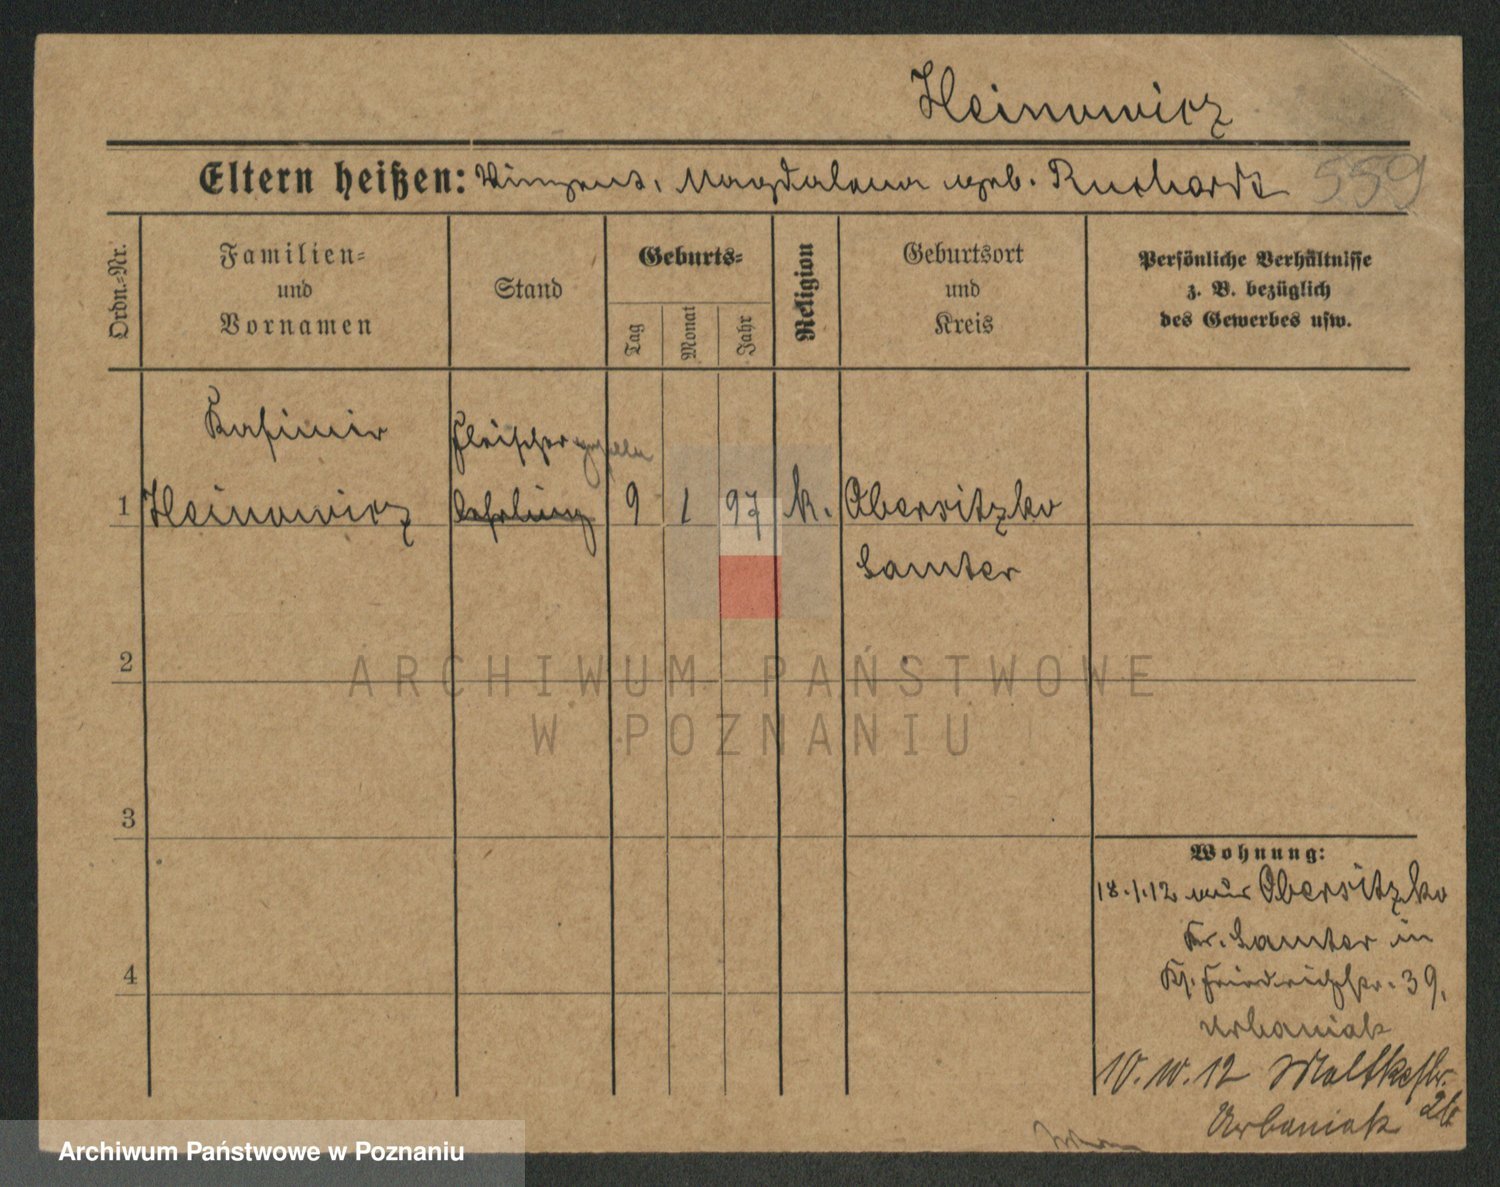 Heinowicz
Eltern heißen: Vinzent, Magdalena geb. Ruchards
559
Ordn.-Nr.
Familien-
und
Vornamen
Stand
Geburts-
Tag
Monat
Jahr
Religion
Geburtsort
und
Kreis
Persönliche Verhältnisse
z. B. bezüglich
des Gewerbes usw.
Kasimir
Fleischergeselle
1 Heinowicz Lehrling 9 1 97 k. Obersitzko
Samter
2
ARCHIWUM PAŃSTWOWE
W POZNANIU
3
4
Wohnung:
18.1.12 aus Obersitzko
Kr. Samter in
Friedrichstr. 39,
Urbaniak
10.10.12 Moltkestr.
26
Urbaniak
Archiwum Państwowe w Poznaniu